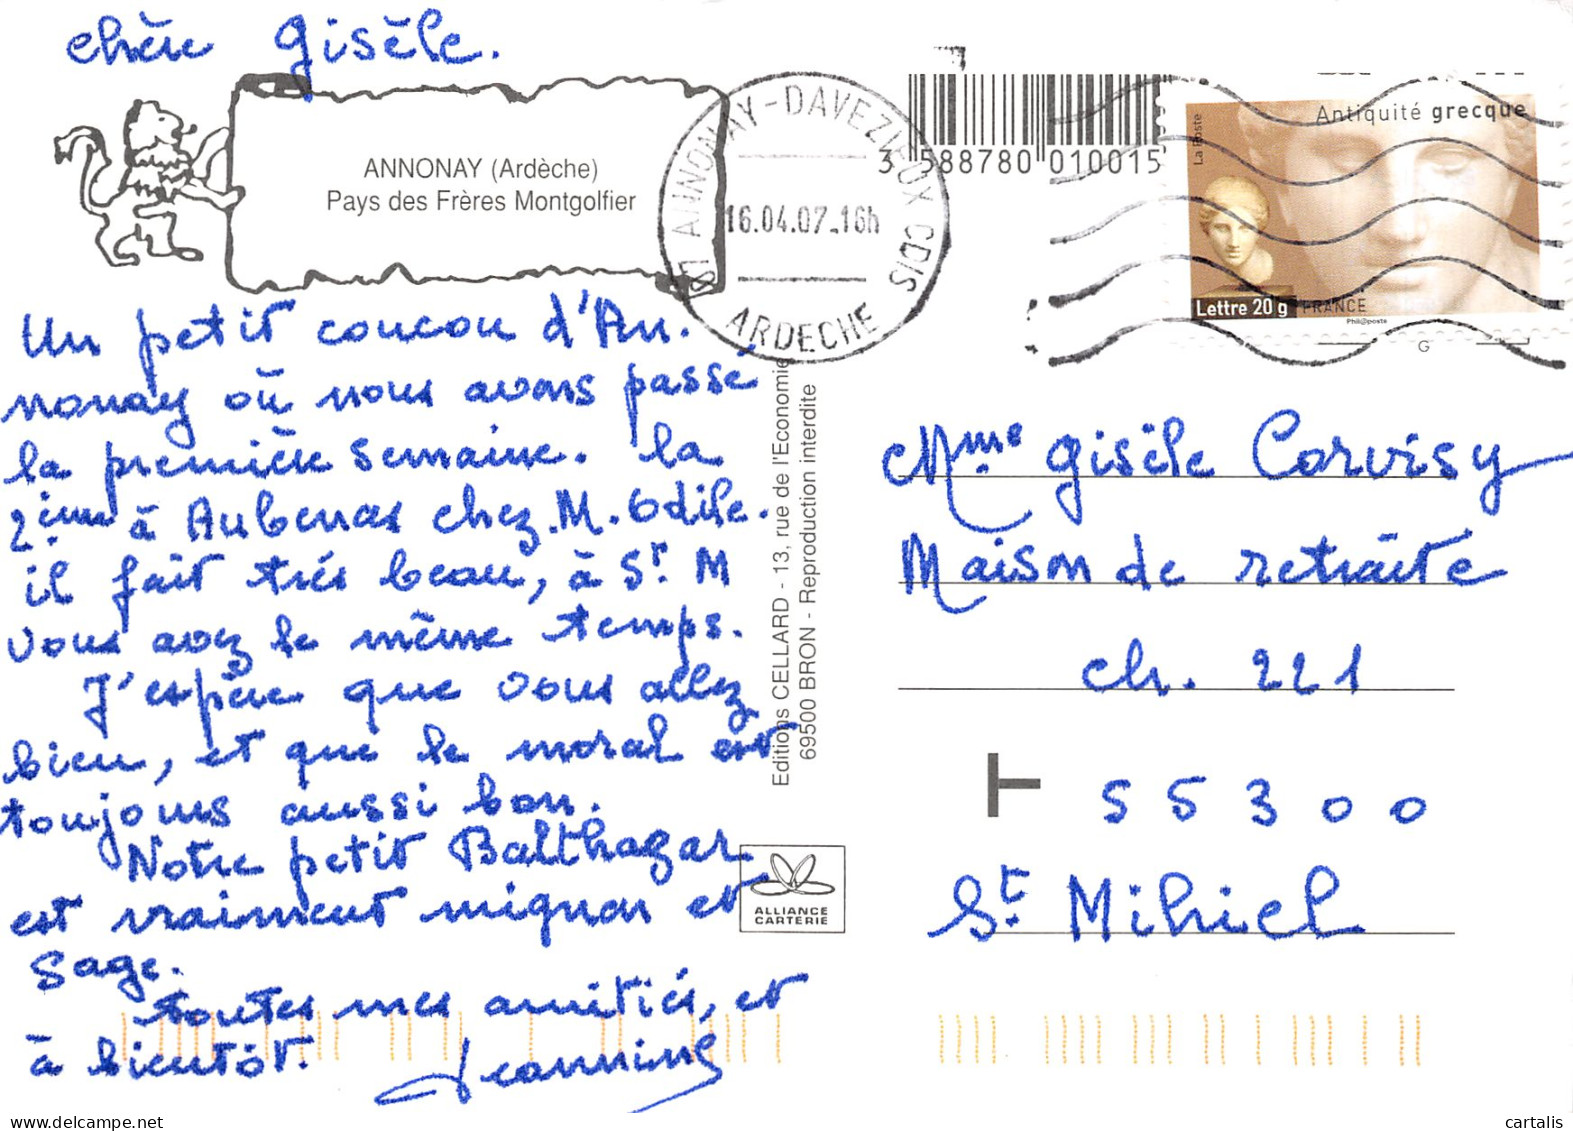 chère Gisèle.
ANNONAY (Ardèche)
Pays des Frères Montgolfier
87 ANNONAY-DAVEZIEUX CDIS
16.04.07-16h
ARDECHE
3 588780 010015
Antiquité grecque
La Poste
Lettre 20 g
FRANCE
Phil@poste
G
Un petit coucou d'An.
nonay où nous avons passé
la première semaine. la
2ième à Aubenas chez M. Odile.
il fait très beau, à St. M
vous avez le même temps.
J'espère que vous allez
bien, et que le moral est
toujours aussi bon.
Notre petit Balthazar
est vraiment mignon et
sage.
toutes mes amitiés, et
à bientôt. Jeannine
Editions CELLARD - 13, rue de l'Economie
69500 BRON - Reproduction interdite
ALLIANCE
CARTERIE
Mme Gisèle Corvisy
Maison de retraite
ch. 221
55300
St. Mihiel
cartalis